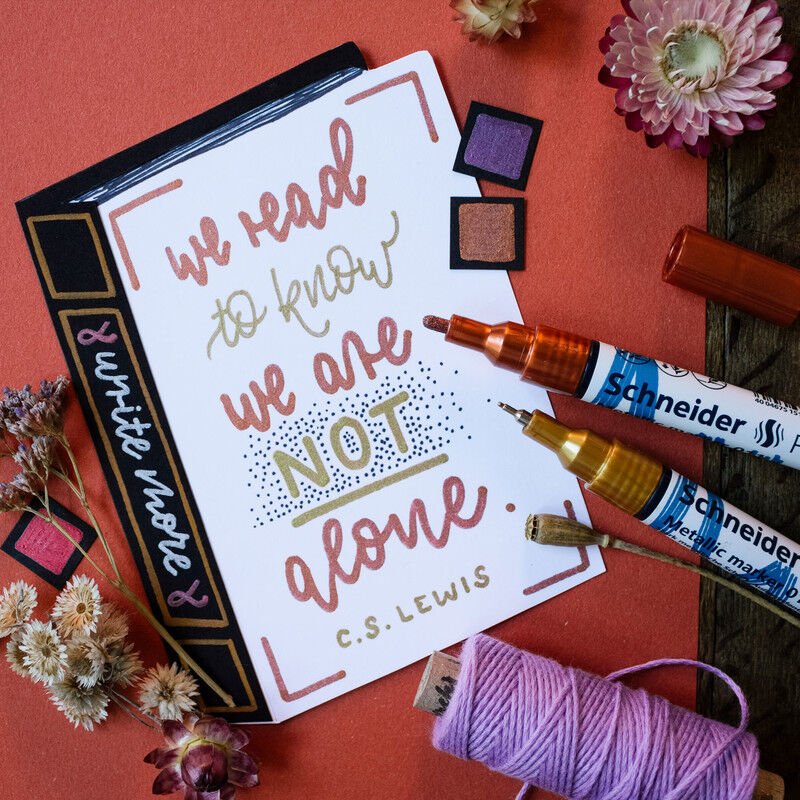 we read
to know
we are
NOT
alone.
C.S. LEWIS
& write more &
Schneider
Schneider
Metallic marker